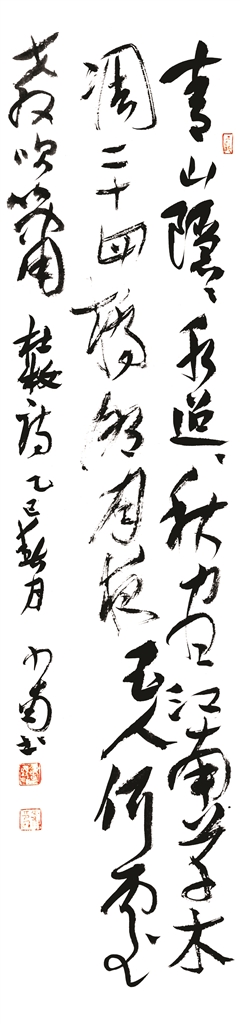 青山隱々水迢々秋盡江南草木
凋二十四橋明月夜玉人何處
教吹簫 杜牧詩 乙巳春月 书